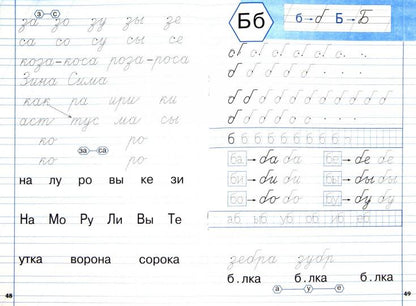 з – с
за зо зу зы зе
са со су сы се
коза-коса роза-роса
Зина Сима
как ра ири ки
аст тус ма сы
ко ро
за – са
ко ро
на лу ро вы ке зи
На Мо Ру Ли Вы Те
утка ворона сорока
48
Бб
б → б Б → Б
б б б б б б б б б б
ба → ба ба бе → бе бе
би → би би бы → бы бы
бо → бо бо бу → бу бу
аб ыб уб об иб еб
зебра зубр
б.лка б.лка б.лка
а у е
49